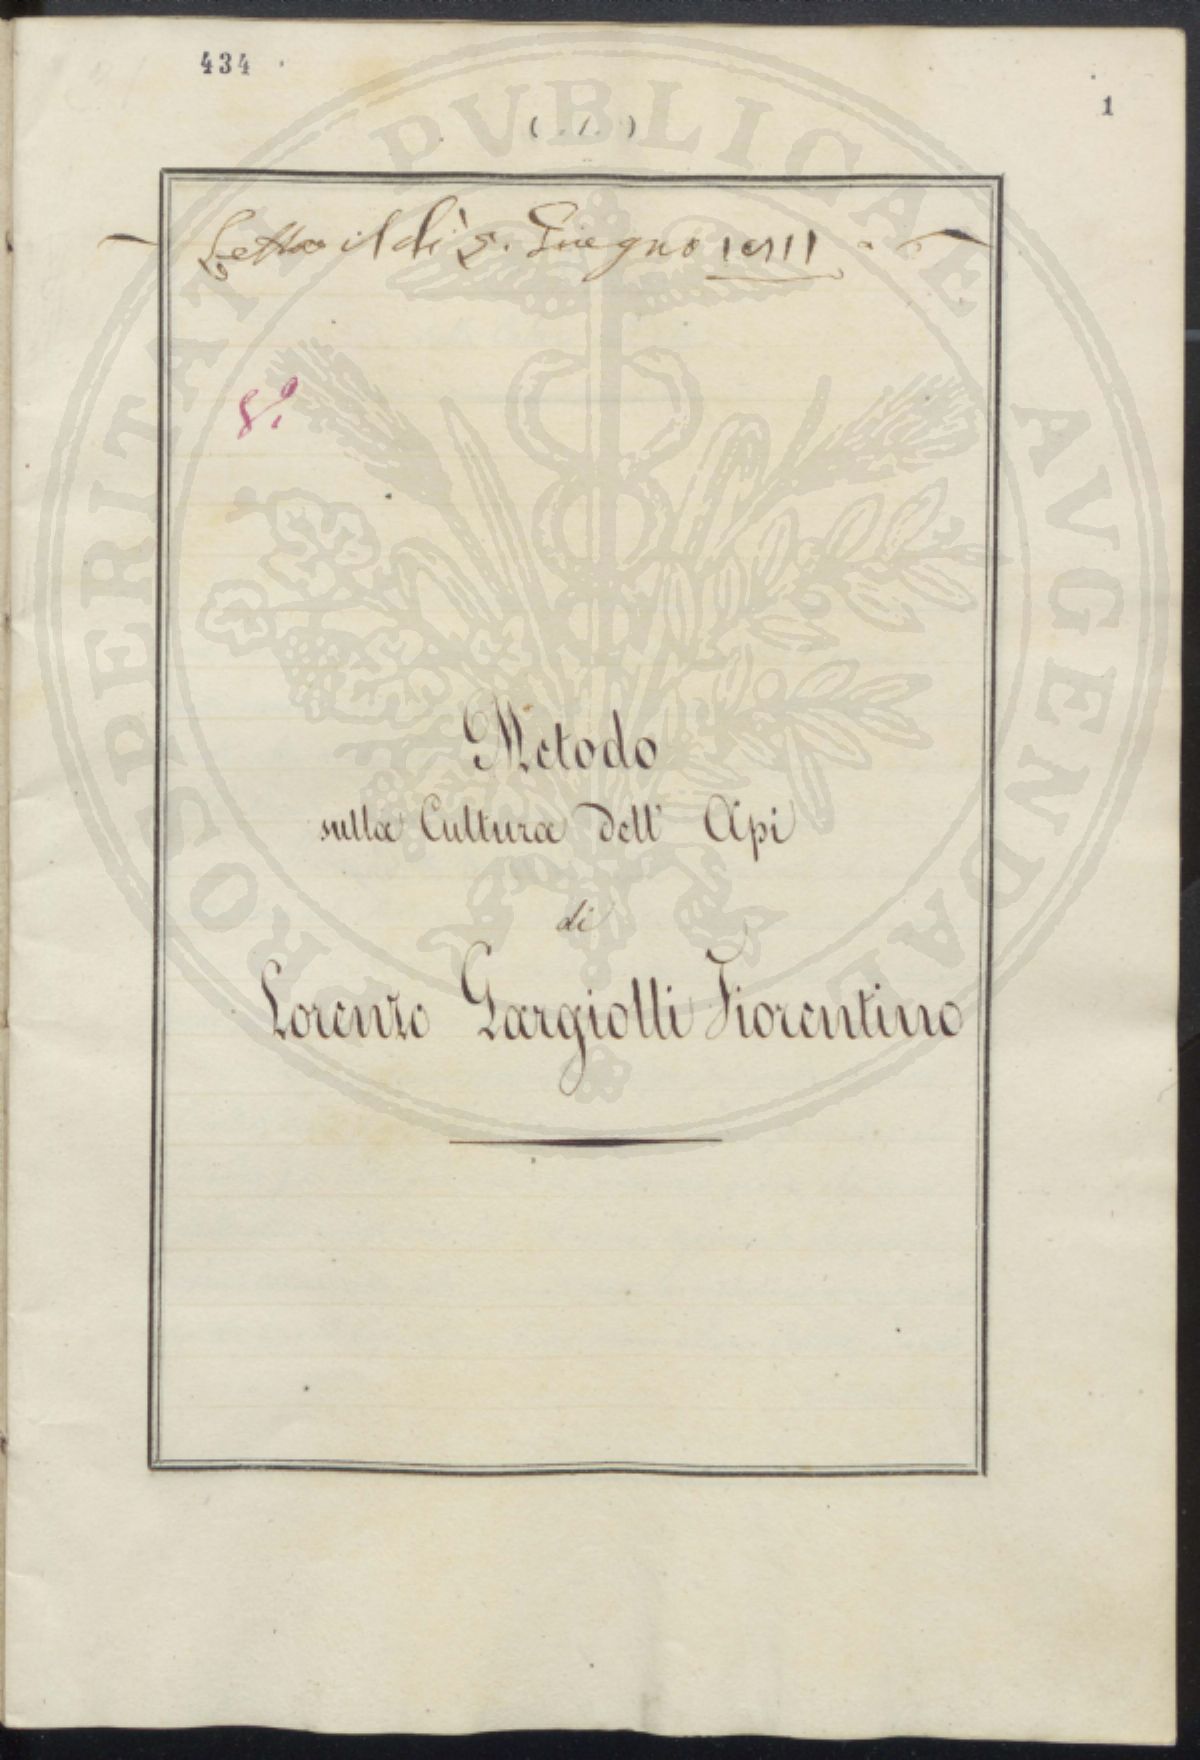 434
1
( . 1. )
Letta il dì 5. Giugno 1811
8º.
Metodo
sulla Cultura dell' Api
di
Lorenzo Gargiolli Fiorentino
PROSPERITATI PVBLICAE AVGENDAE